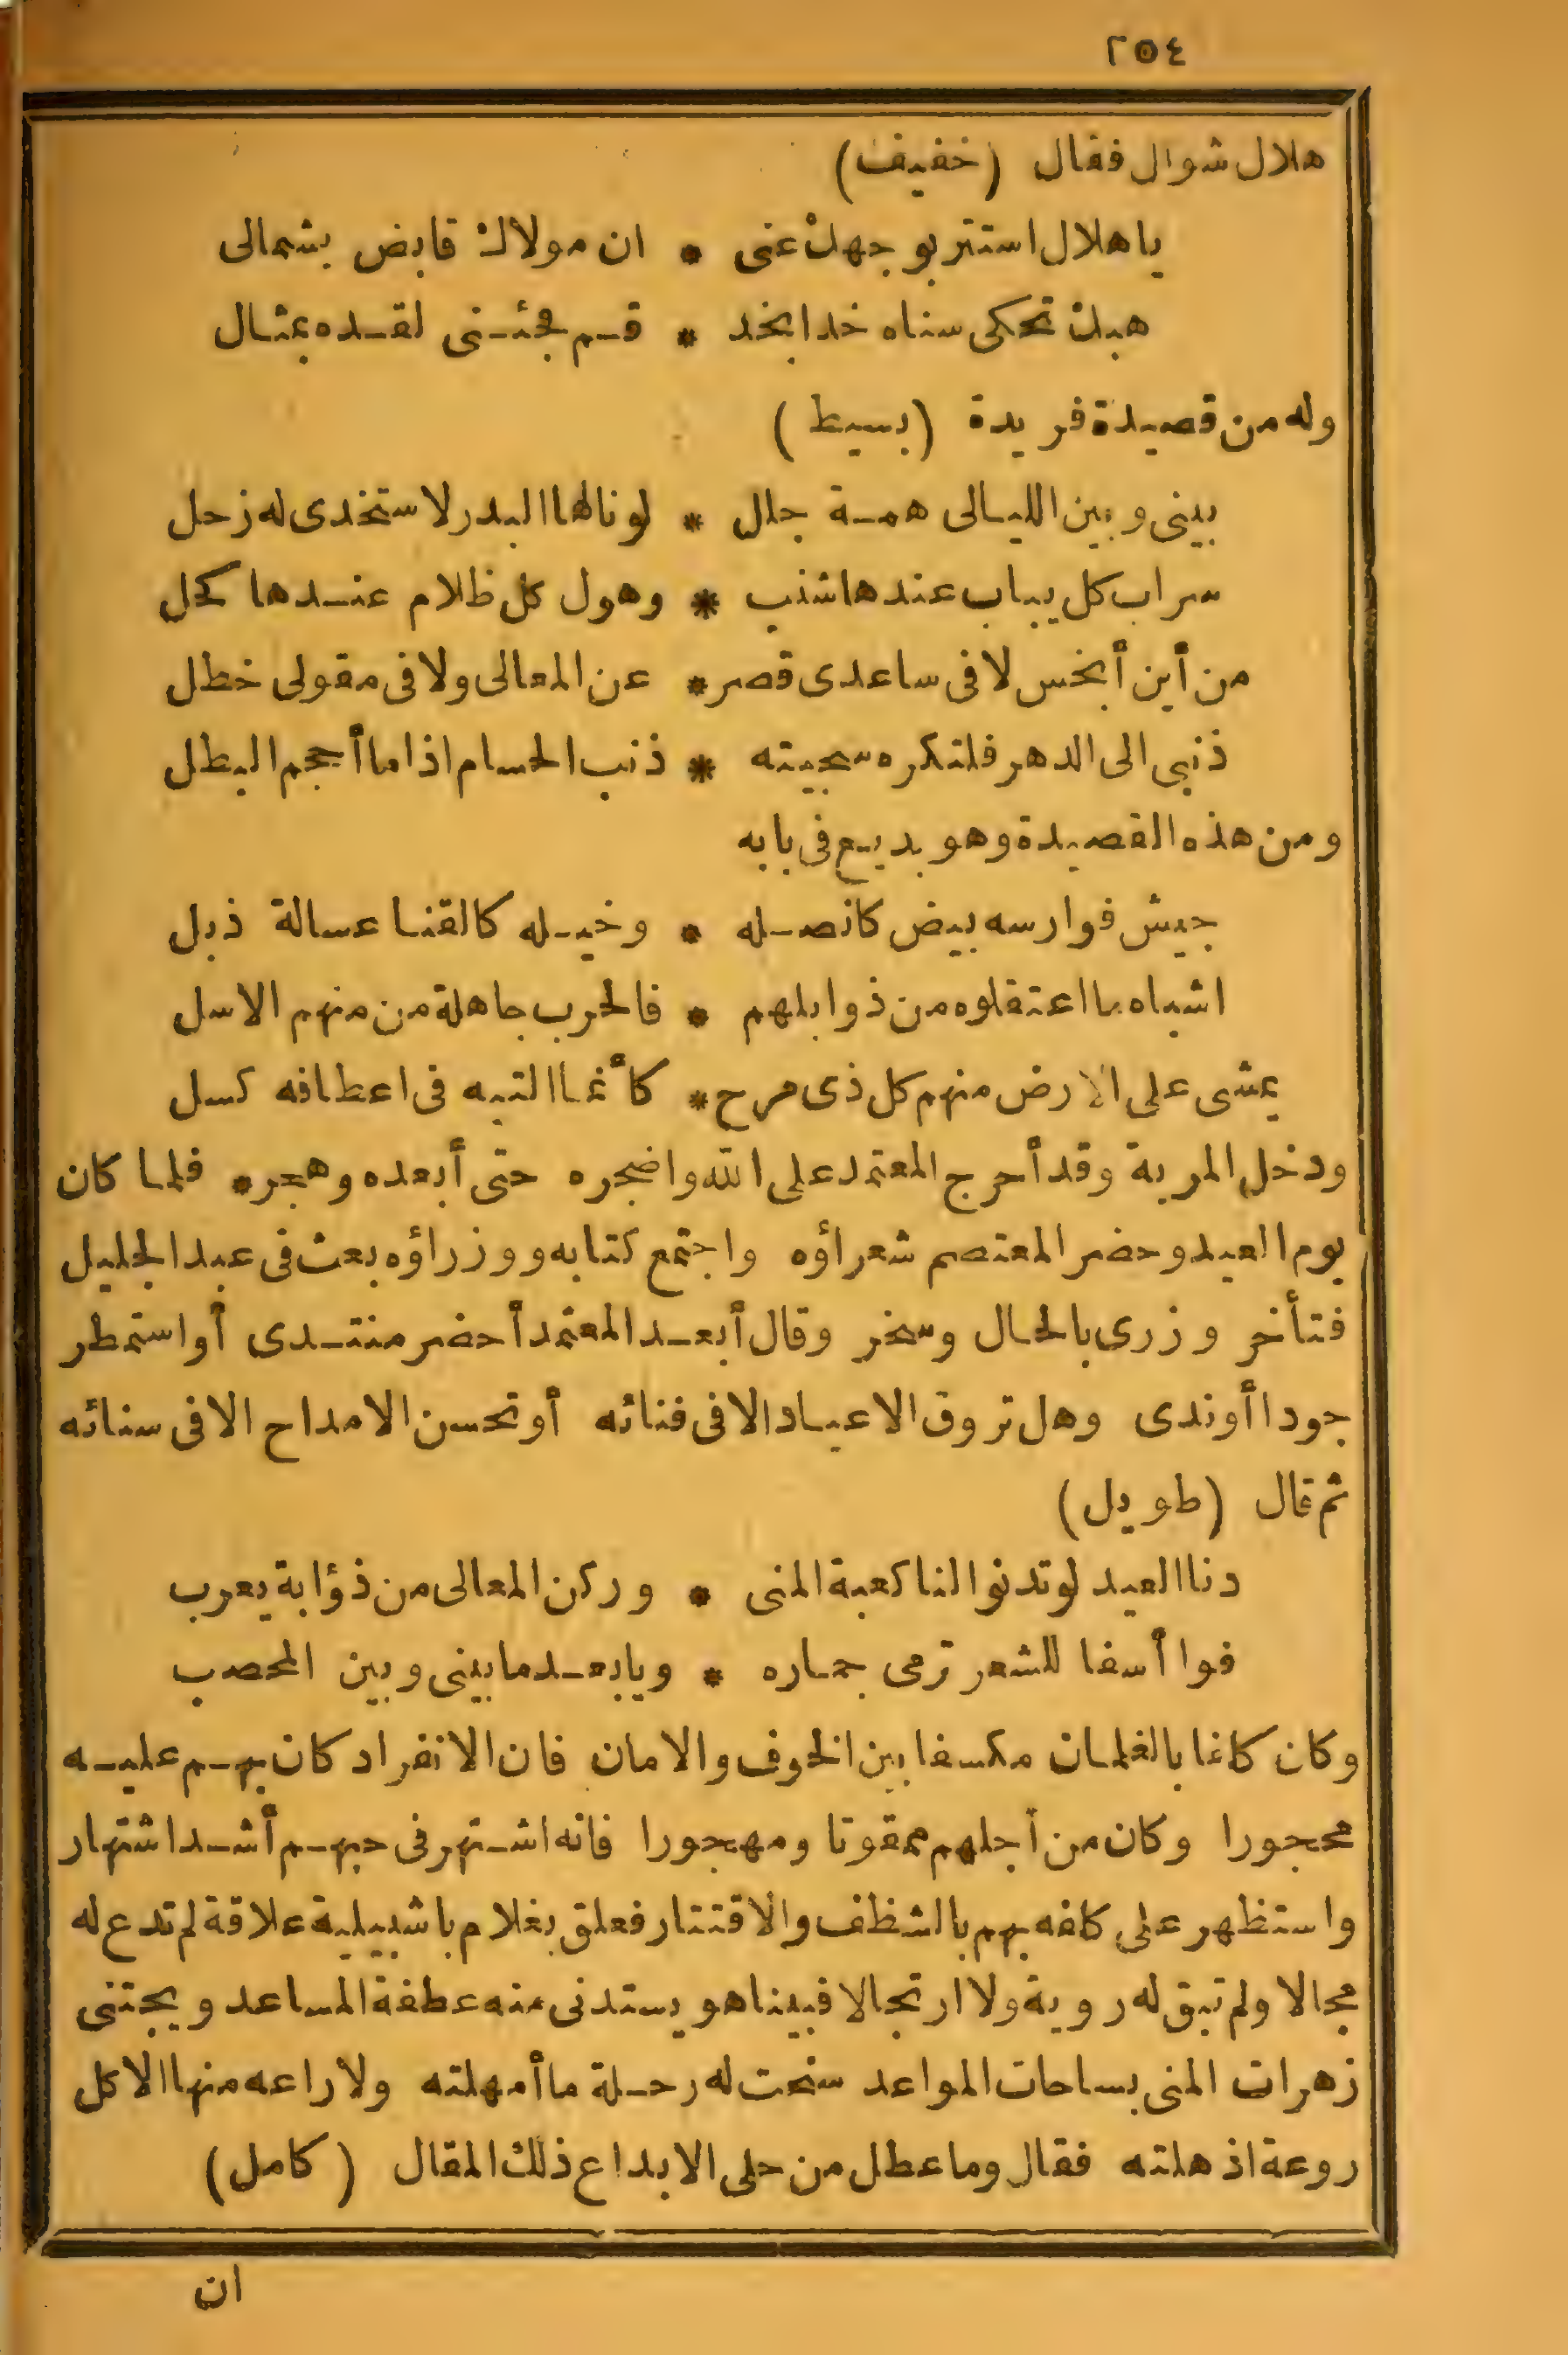 ٢٥٤
هلال شوال فقال (خفيف)
ياهلال استتر بوجهك عنى * ان مولاك قابض بشمالى
هبك تحكى سناه خدا بخد * قم فجئنى لقده بمثال
وله من قصيدة فريدة (بسيط)
بينى وبين الليالى همة جلل * لو نالها البدر لاستخدى له زحل
سراب كل يباب عندها شنب * وهول كل ظلام عندها كحل
من أين أبخس لا فى ساعدى قصر * عن المعالى ولا فى مقولى خطل
ذنبى الى الدهر فلتكره سجيته * ذنب الحسام اذا ما أحجم البطل
ومن هذه القصيدة وهو بديع فى بابه
جيش فوارسه بيض كانصله * وخيله كالقنا عسالة ذبل
اشباه ما اعتقلوه من ذوابلهم * فالحرب جاهلة من منهم الاسل
يمشى على الارض منهم كل ذى مرح * كأنما التيه فى اعطافه كسل
ودخل المرية وقد أحرج المعتمد على الله واضجره حتى أبعده وهجره فلما كان
يوم العيد وحضر المعتصم شعراؤه واجتمع كتابه ووزراؤه بعث فى عبد الجليل
فتأخر وزرى بالحال وسخر وقال أبعد المعتمد أحضر منتدى أو استمطر
جودا أوندى وهل تروق الاعياد الا فى فنائه أو تحسن الامداح الا فى سنائه
ثم قال (طويل)
دنا العيد لو تدنو النا كعبة المنى * وركن المعالى من ذؤابة يعرب
فوا أسفا للشعر ترمى جماره * ويا بعد ما بينى وبين المحصب
وكان كلفا بالغلمان مكسفا بين الخوف والامان فان الانفراد كان بهم عليه
محجورا وكان من أجلهم ممقوتا ومهجورا فانه اشتهر فى حبهم أشد اشتهار
واستظهر على كلفه بهم بالشظف والاقتتار فعلق بغلام باشبيلية علاقة لم تدع له
مجالا ولم تبق له روية ولا ارتجالا فبيناهو يستدنى منه عطفة المساعد ويجتنى
زهرات المنى بساحات المواعد سنحت له رحلة ما أمهلته ولا راعه منها الا كل
روعة اذهلته فقال وما عطل من حلى الابداع ذلك المقال (كامل)
ان